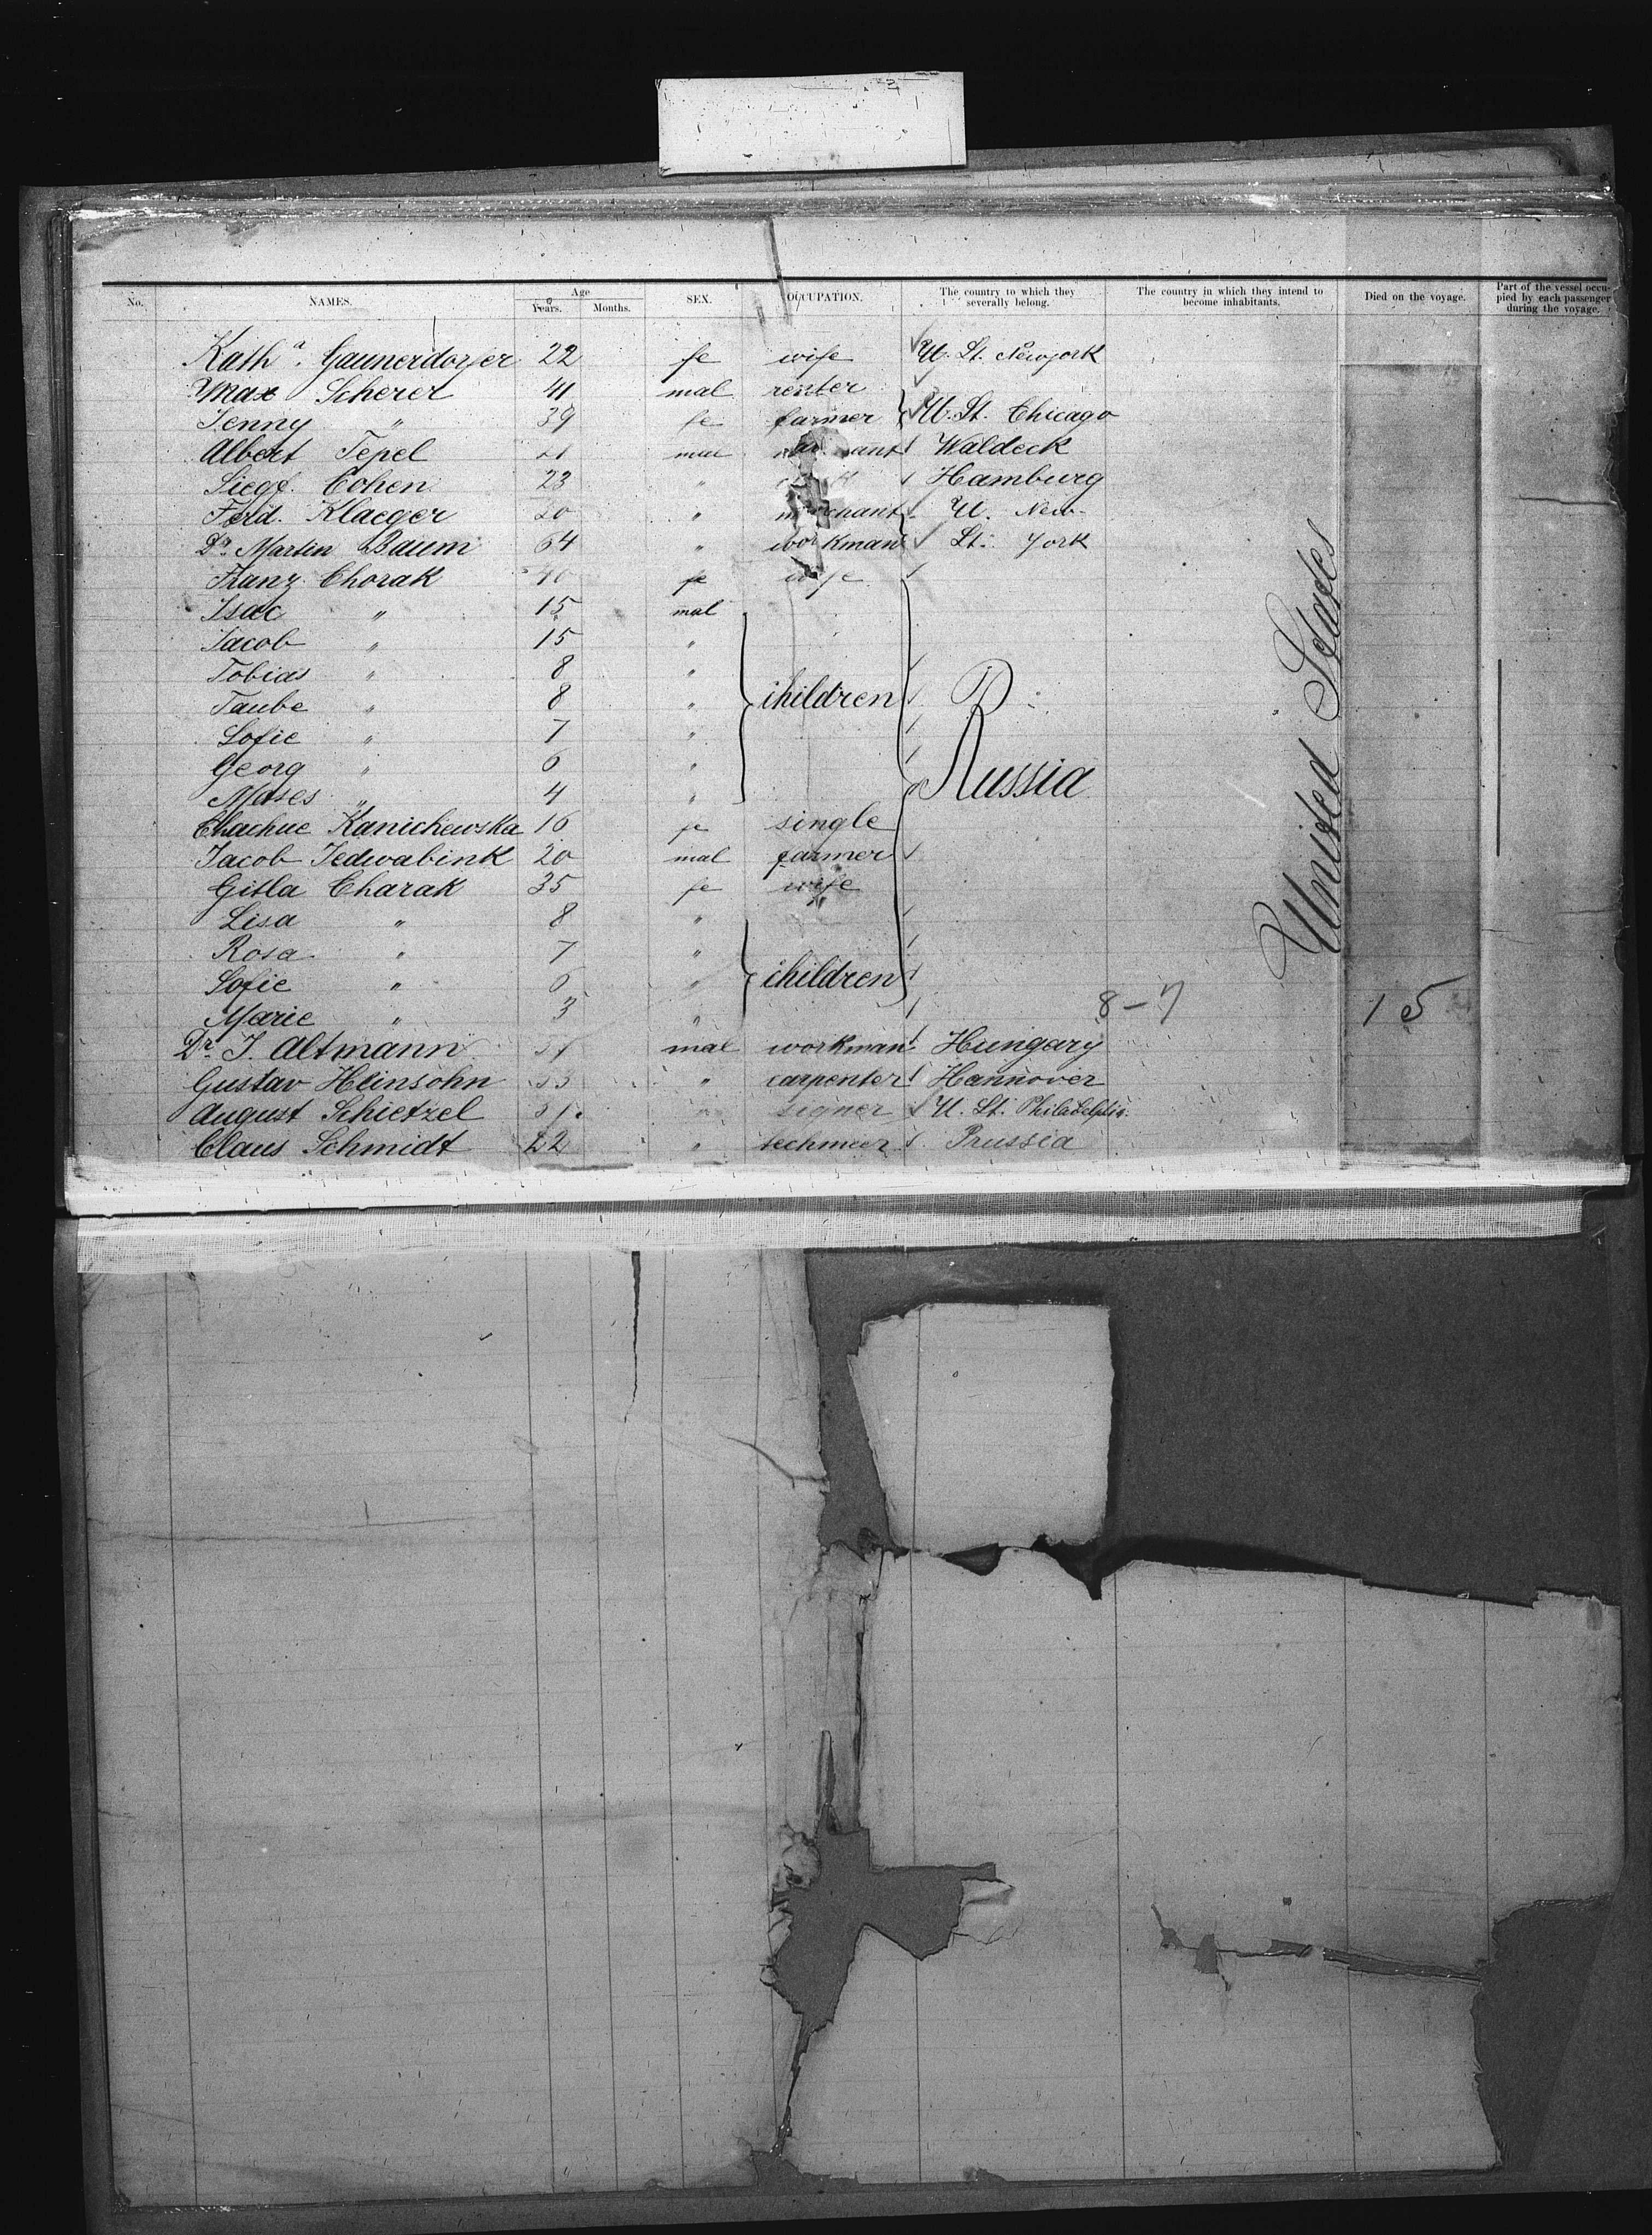 No. NAMES. Age Years. Months. SEX. OCCUPATION. The country to which they severally belong. The country in which they intend to become inhabitants. Died on the voyage. Part of the vessel occupied by each passenger during the voyage.
Kath a. Gaunerdorfer 22 fe wife U. St. Newyork
Max Scherer 41 mal
Jenny " 39 fe farmer U. St. Chicago
Albert Tepel 21 mal Waldeck
Siegf. Cohen 23 " Hamburg
Ferd. Klaeger 20 " merchant U. New-
Dr. Martin Baum 64 " workman St. York
Franz Chorak 40 fe wife
Isac " 15 mal
Jacob " 15 "
Tobias " 8 "
Taube " 8 " children R
Sofie " 7 "
Georg " 6 "
Moses " 4 " Russia
Chachue Kanichewska 16 fe single
Jacob Jedwabink 20 mal farmer
Gitla Charak 35 fe wife
Lisa " 8 "
Rosa " 7 "
Sofie " 6 " children
Marie " 3 "
Dr. J. Altmann mal workman Hungary
Gustav Heinsohn 33 " carpenter Hannover
August Schietzel 31 " signer U. St. Philadelphia
Claus Schmidt 22 " Prussia
United States
8-7
15